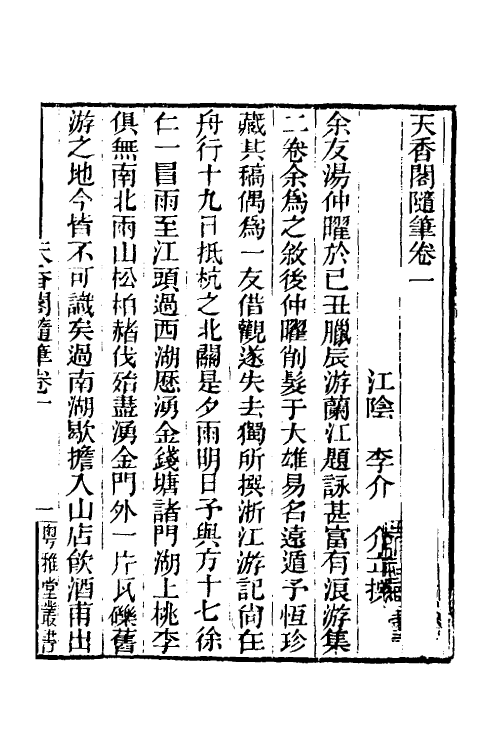 天香閣隨筆卷一
江陰 李介 介立撰
余友湯仲曜於己丑臘辰游蘭江題詠甚富有浪游集
二卷余爲之敘後仲曜削髮于大雄易名遠遁予恆珍
藏其稿偶爲一友借觀遂失去獨所撰浙江游記尙在
舟行十九日抵杭之北關是夕雨明日予與方十七徐
仁一冒雨至江頭過西湖歷湧金錢塘諸門湖上桃李
俱無南北兩山松柏赭伐殆盡湧金門外一片瓦礫舊
游之地今皆不可識矣過南湖歇擔入山店飮酒甫出
天香閣隨筆卷一
一
粵雅堂叢書